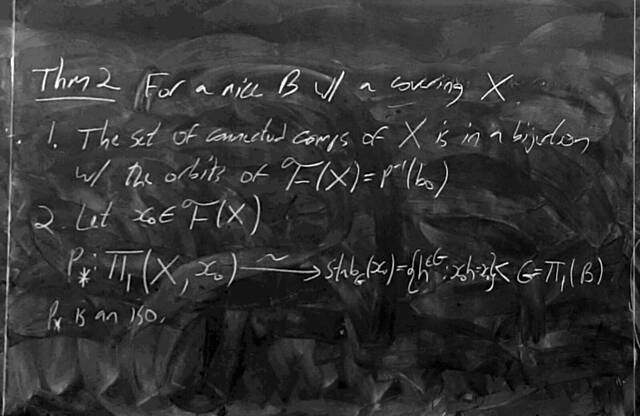 Thm 2 For a nice B w/ a covering X.
1. The set of connected comps of X is in a bijection
w/ the orbits of ℱ(X) = p⁻¹(b₀)
2. Let x₀ ∈ ℱ(X)
P_*: π₁(X, x₀) →~ stab_G(x₀) = {h∈G : x₀h = x₀} < G = π₁(B)
P_* is an iso.